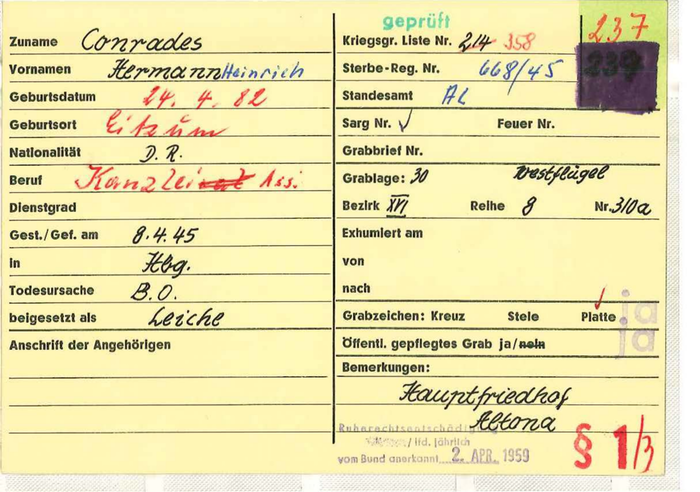 geprüft
237
237
Zuname Conrades
Vornamen Hermann Heinrich
Geburtsdatum 24. 4. 82
Geburtsort Eitzum
Nationalität D. R.
Beruf Kanzlei Ass.
Dienstgrad
Gest./Gef. am 8.4.45
in Hbg.
Todesursache B.O.
beigesetzt als Leiche
Anschrift der Angehörigen
Kriegsgr. Liste Nr. 214 358
Sterbe-Reg. Nr. 668/45
Standesamt AL
Sarg Nr. ✓ Feuer Nr.
Grabbrief Nr.
Grablage: 30 Westflügel
Bezirk XVI Reihe 8 Nr. 310a
Exhumiert am
von
nach
Grabzeichen: Kreuz Stele Platte ja
Öffentl. gepflegtes Grab ja/nein ja
Bemerkungen:
Hauptfriedhof
Altona
Ruherechtsentschädigung
/ lfd. jährlich
vom Bund anerkannt 2. APR. 1959
§ 1/3